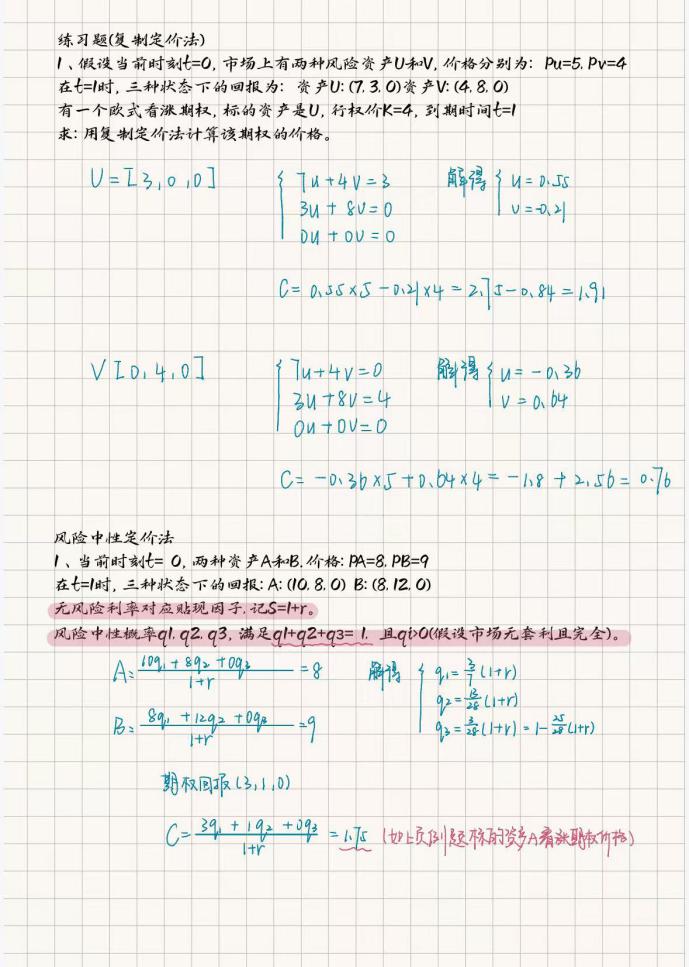 练习题(复制定价法)
1、假设当前时刻t=0, 市场上有两种风险资产U和V, 价格分别为: Pu=5. Pv=4
在t=1时, 三种状态下的回报为: 资产U: (7. 3. 0) 资产V: (4. 8. 0)
有一个欧式看涨期权, 标的资产是U, 行权价K=4, 到期时间t=1
求: 用复制定价法计算该期权的价格。
U=[3,0,0] { 7u+4v=3 解得 { u=0.55
3u+8v=0 v=-0.21
0u+0v=0
C= 0.55×5-0.21×4=2.75-0.84=1.91
V[0,4,0] { 7u+4v=0 解得 { u=-0.36
3u+8v=4 v=0.64
0u+0v=0
C= -0.36×5+0.64×4=-1.8+2.56=0.76
风险中性定价法
1、当前时刻t= 0, 两种资产A和B. 价格: PA=8. PB=9
在t=1时, 三种状态下的回报: A: (10. 8. 0) B: (8. 12. 0)
无风险利率对应贴现因子. 记S=1+r。
风险中性概率q1. q2. q3, 满足q1+q2+q3= 1. 且qi>0(假设市场无套利且完全)。
A: (10q1+8q2+0q3)/(1+r) =8 解得 { q1=3/7(1+r)
q2=13/28(1+r)
B: (8q1+12q2+0q3)/(1+r) =9 q3=3/28(1+r)=1-25/28(1+r)
期权回报(3,1,0)
C= (3q1+1q2+0q3)/(1+r) =1.75 (如上页例题标的资产A看涨期权价格)